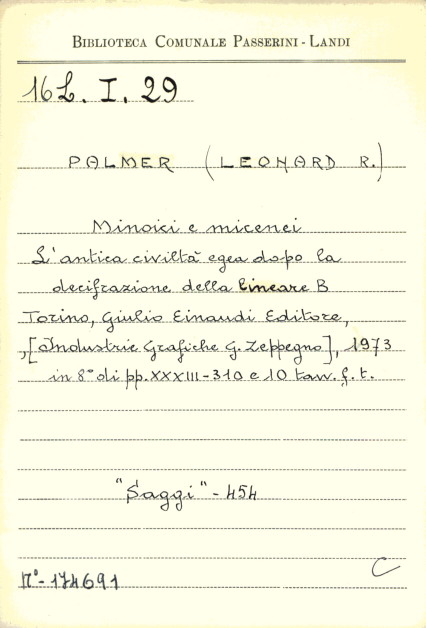 BIBLIOTECA COMUNALE PASSERINI - LANDI
16 L. I. 29
PALMER (LEONARD R.)
Minoici e micenei
L'antica civiltà egea dopo la
decifrazione della lineare B
Torino, Giulio Einaudi Editore,
,[Industrie Grafiche G. Zeppegno], 1973
in 8° di pp. XXXIII-310 e 10 tav. f. t.
"Saggi" - 454
C
N° - 174691